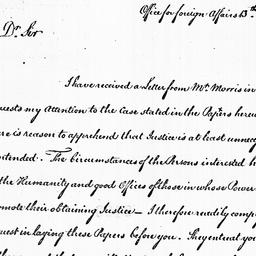 Office for foreign Affairs 13th
Dr. Sir
I have received a Letter from Mr. Morris in
quests my Attention to the case stated in the Papers hereu
ere is reason to apprehend that Justice is at least unnece
ntended. The Circumstances of the Persons interested h
the Humanity and good Offices of those in whose Power
omote their obtaining Justice— I therefore readily comp
quest in laying these Papers before you. They entreat you